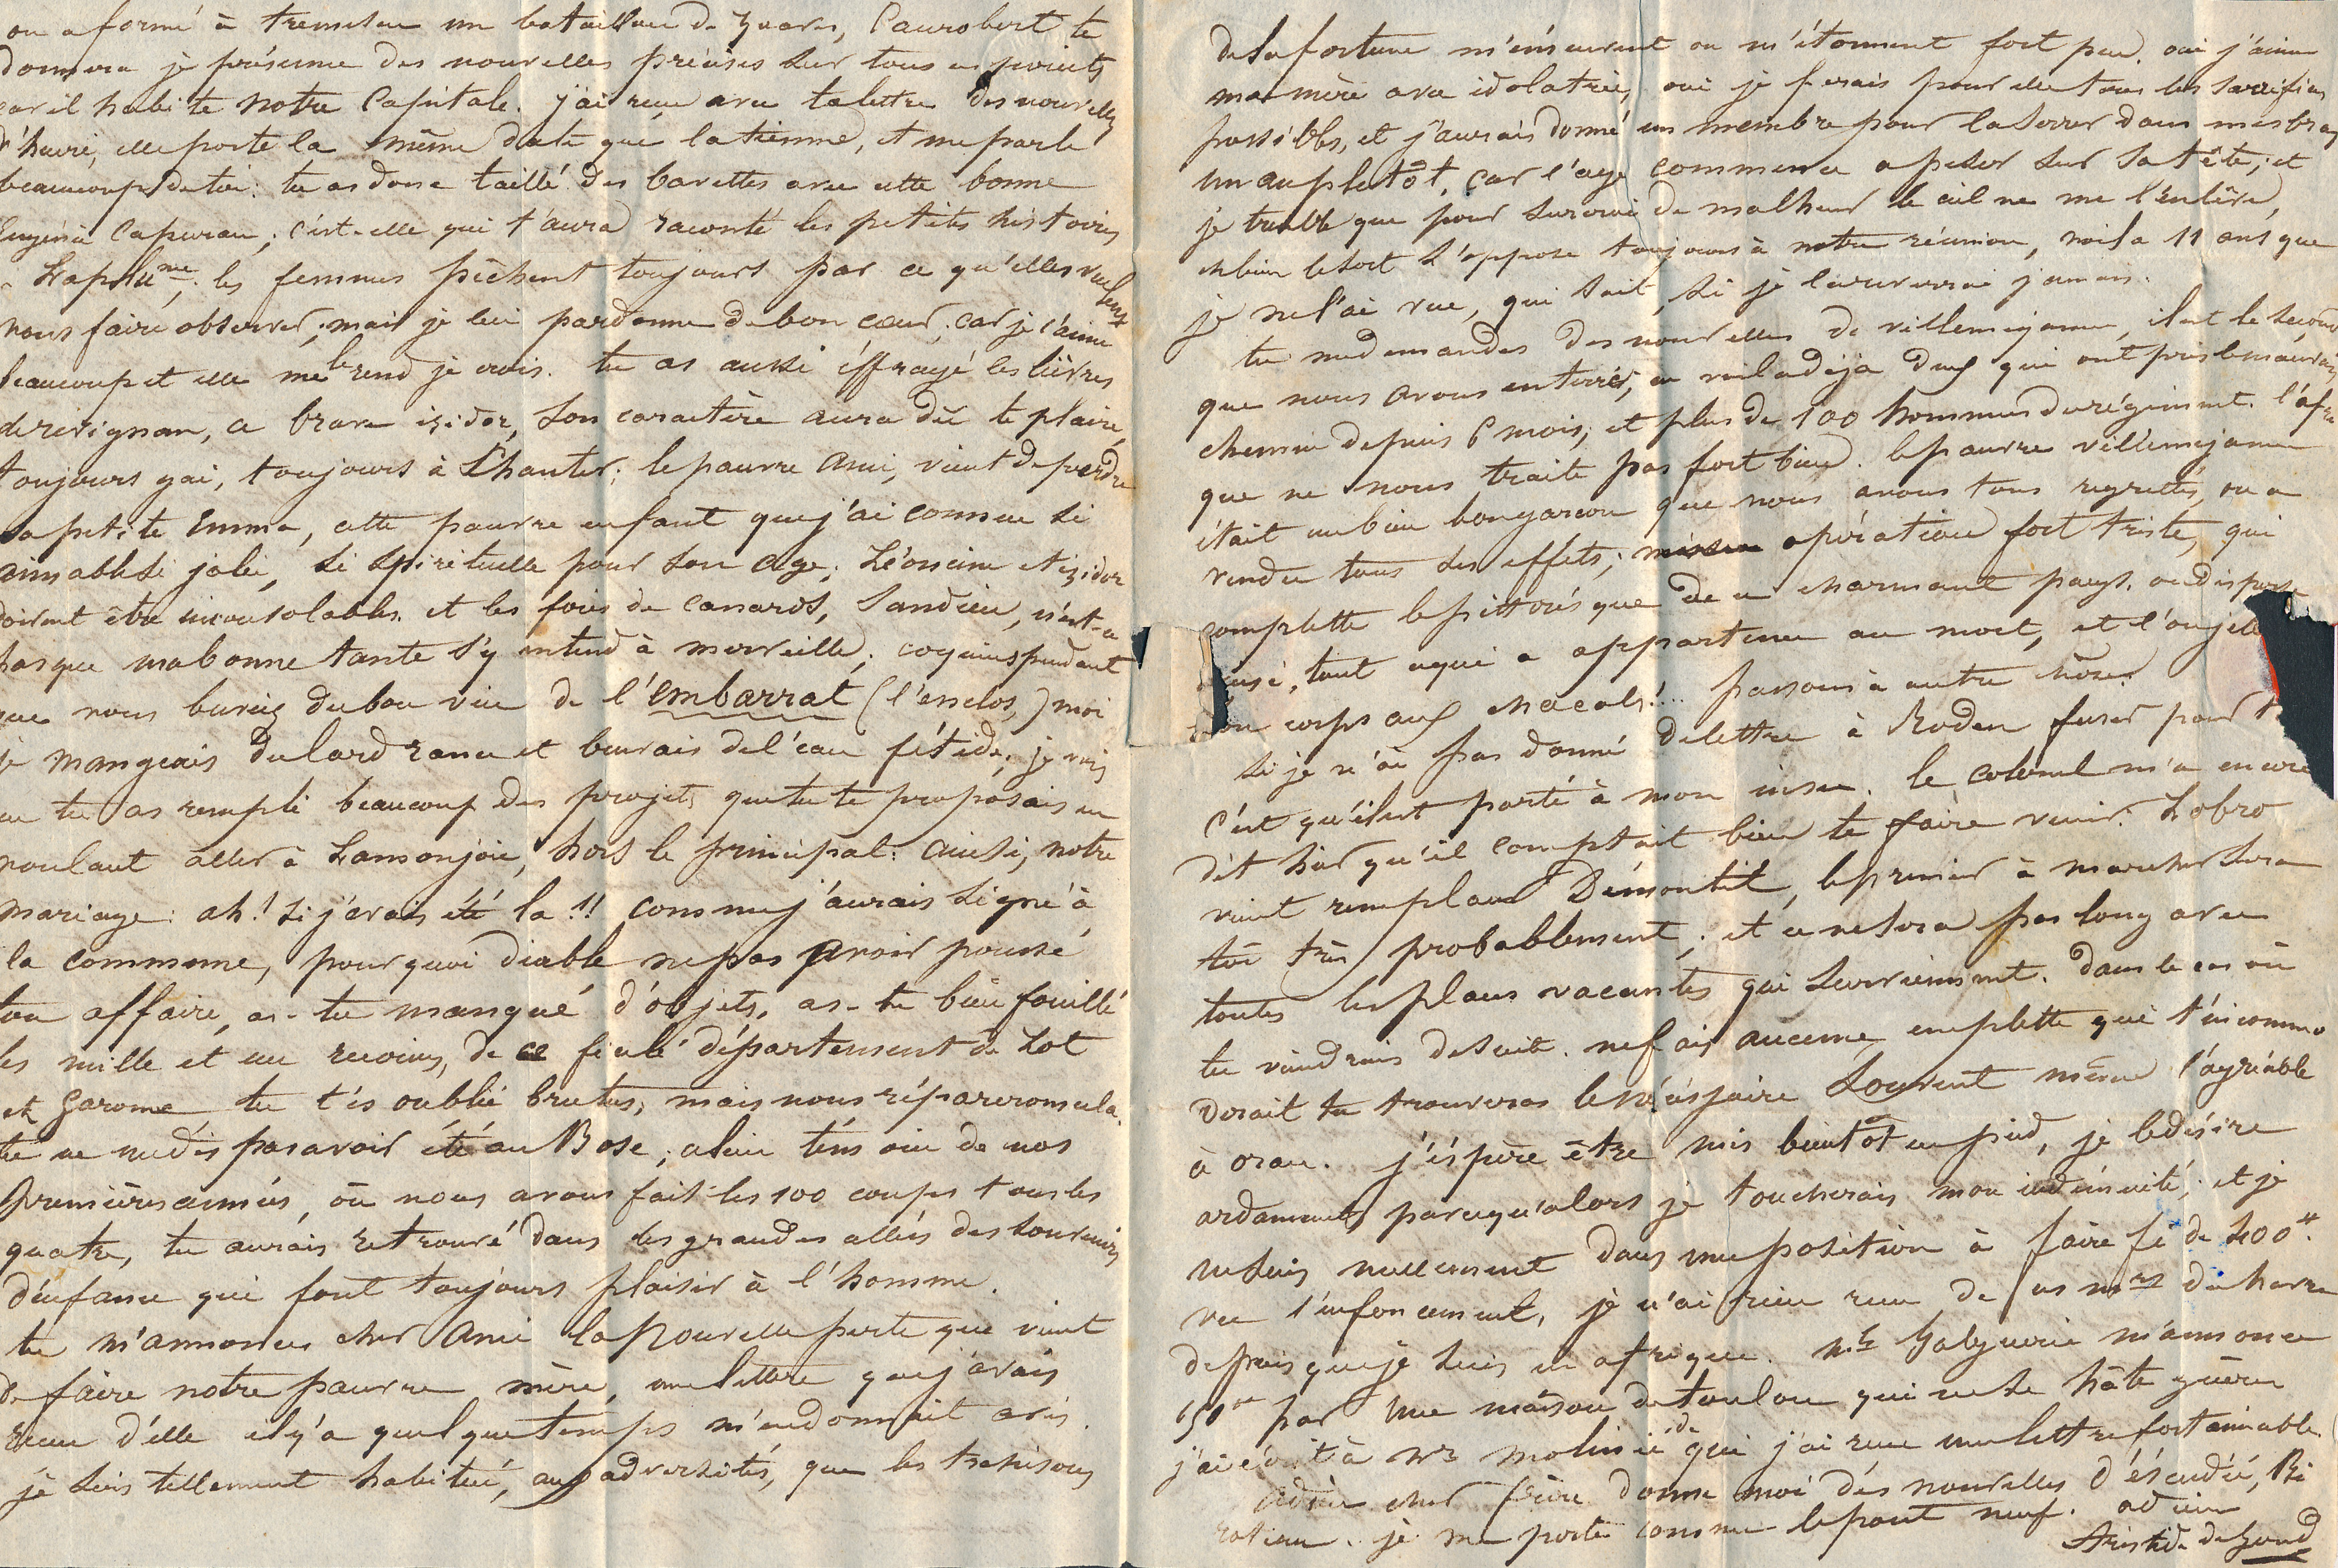 on a formé à tremesen un bataillon de zuaves, Canrobert te
donnera je présume des nouvelles précises sur tous ces points
car il habite notre capitale. j'ai reçu avec ta lettre des nouvelles
d'havie, elle porte la même date que la tienne, et me parle
beaucoup de toi: tu as donc taillé des bavettes avec cette bonne
Eugénie Capuran; c'est-elle qui t'aura raconté les petites histoires
les femmes pêchent toujours par ce qu'elles veulent
nous faire observer; mais je lui pardonne de bon cœur, car je l'aime
beaucoup et elle me le rend je crois. tu as aussi éffrayé les lièvres
de revignan, ce brave izidor, son caractère aura dû te plaire,
toujours gai, toujours à chanter; le pauvre ami, vient de perdre
sa petite Emma, cette pauvre enfant que j'ai connue si
aimable si jolie, si spirituelle pour son age; Léoncine et izidor
doivent être inconsolables. et les foies de canards, Sandieu, n'est-ce
pas que ma bonne tante s'y entend à merveille; coquins pendant
que nous buviez du bon vin de l'embarrat (l'enclos,) moi
je mangeais du lard rance et buvais de l'eau fétide; je vois
que tu as rempli beaucoup des projets que tu te proposais en
voulant aller à Lamonjoie, hors le principal: ainsi, notre
mariage: ah! si j'avais été la!! comme j'aurais signé à
la commune, pourquoi diable ne pas avoir poussé
ton affaire, as-tu manqué d'objets, as-tu bien fouillé
les mille et un recoins, de ce département de Lot
et Garonne tu t'és oublié brutus, mais nous réparerons cela.
tu ne me dis pas avoir été au Bosc; ce lieu témoin de nos
premières années, où nous avons fait les 100 coups tous les
quatre, tu aurais retrouvé dans les grandes allées des souvenirs
d'enfance qui font toujours plaisir à l'homme.
tu m'annonces cher ami la nouvelle perte que vient
de faire notre pauvre mère, une lettre que j'avais
reçu d'elle il y'a quelque temps m'en donnait avis.
je suis tellement habitué, aux adversités, que les trahisons
de la fortune m'émeuvent ou m'étonnent fort peu. oui j'aime
ma mère avec idolatrie, oui je ferais pour elle tous les sacrifices
possibles, et j'aurais donné un membre pour la serrer dans mes bras
un an plutôt, car l'age commence a peser sur sa tête; et
je tremble que pour surcroi de malheur le ciel ne me l'enlève,
eh bien le sort s'oppose toujours à notre réunion, voila 11 ans que
je ne l'ai vue, qui sait, si je la reverrai jamais.
tu me demandes des nouvelles de villemejanne, il est le second
que nous avons enterré, en voila déja deux qui ont pris le mauvais
chemin depuis 6 mois, et plus de 100 hommes du régiment. l'afri
que ne nous traite pas fort bien. le pauvre villemejanne
était un bien bon garçon que nous avons tous regretté, on a
vendu tous ses effets; opération fort triste, qui
complette le pittorésque de ce charmant pays. on disperse
tout ce qui a appartenu au mort, et l'on jette
son corps aux chacals!.. passons à autre chose.
si je n'ai pas donné de lettre à Roden fuser pour
c'est qu'il est parti à mon insu. le colonel m'a encore
dit hier qu'il comptait bien te faire venir. Lobro
vient remplacer Démontit, le premier à marcher sera
toi très probablement; et ce ne sera pas long avec
toutes les places vacantes qui surviennent. dans le cas où
tu viendrais de suite. ne fais aucune emplette qui t'incommo
derait tu trouveras le nécéssaire souvent même l'agréable
à oran. j'éspère être mis bientôt en pied, je le désire
ardamment, parcequ'alors je toucherais mon indémnité; et je
ne suis nullement dans une position à faire fi de 400"
vu l'enfoncement, je n'ai rien reçu de ces mrs du havre
depuis que je suis en afrique. Mr Galguerie m'annonce
150 fr par une maison de toulon qui ne se hâte guère
j'ai écrit à Mr molinié de qui j'ai reçu une lettre fort aimable.
adieu cher frère donne moi dés nouvelles d'éscudié,
je me porte comme le pont neuf. adieu
Aristide de Gond